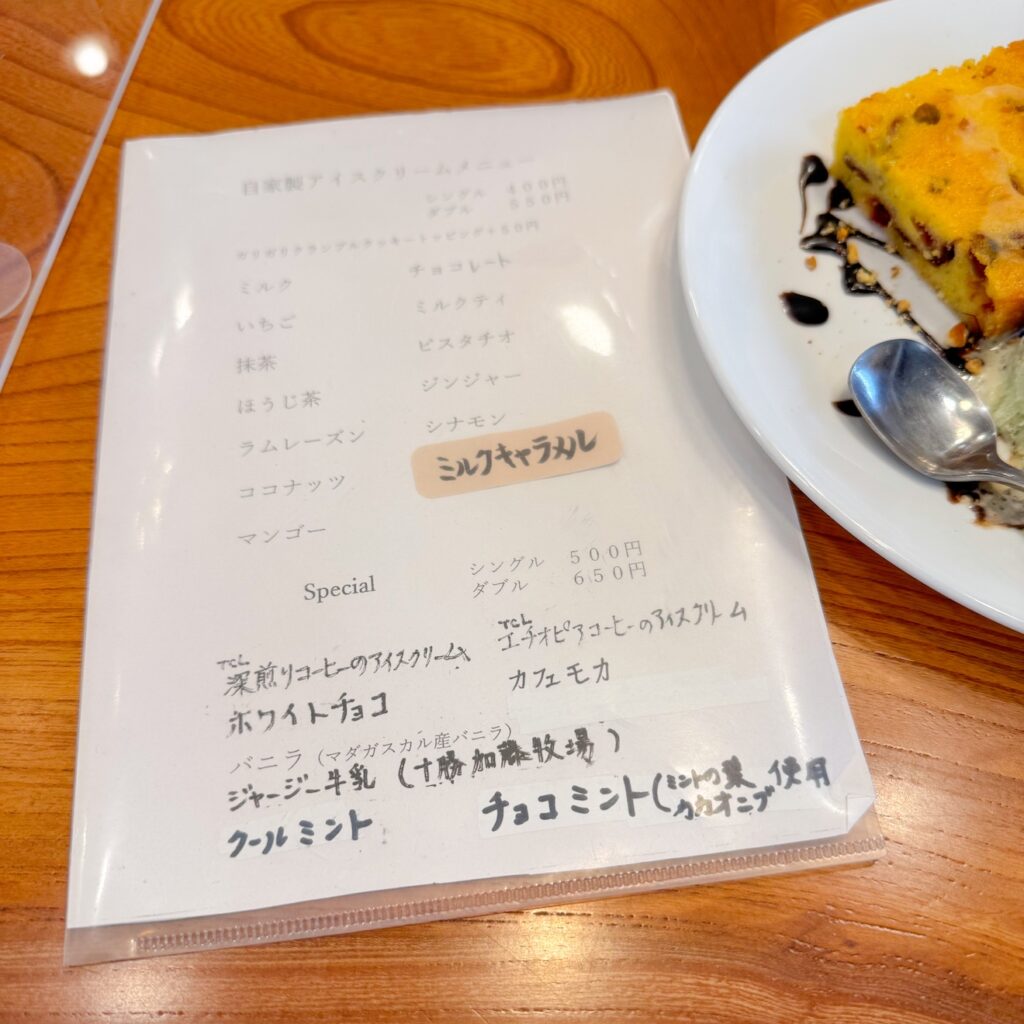 自家製アイスクリームメニュー
シングル 400円
ダブル 550円
ガリガリクランブルクッキートッピング+50円
ミルク チョコレート
いちご ミルクティ
抹茶 ピスタチオ
ほうじ茶 ジンジャー
ラムレーズン シナモン
ココナッツ ミルクキャラメル
マンゴー
Special
シングル 500円
ダブル 650円
TCL
深煎りコーヒーのアイスクリーム
TCL
エチオピアコーヒーのアイスクリーム
ホワイトチョコ カフェモカ
バニラ (マダガスカル産バニラ)
ジャージー牛乳 (十勝加藤牧場)
クールミント チョコミント(ミントの葉 カカオニブ 使用